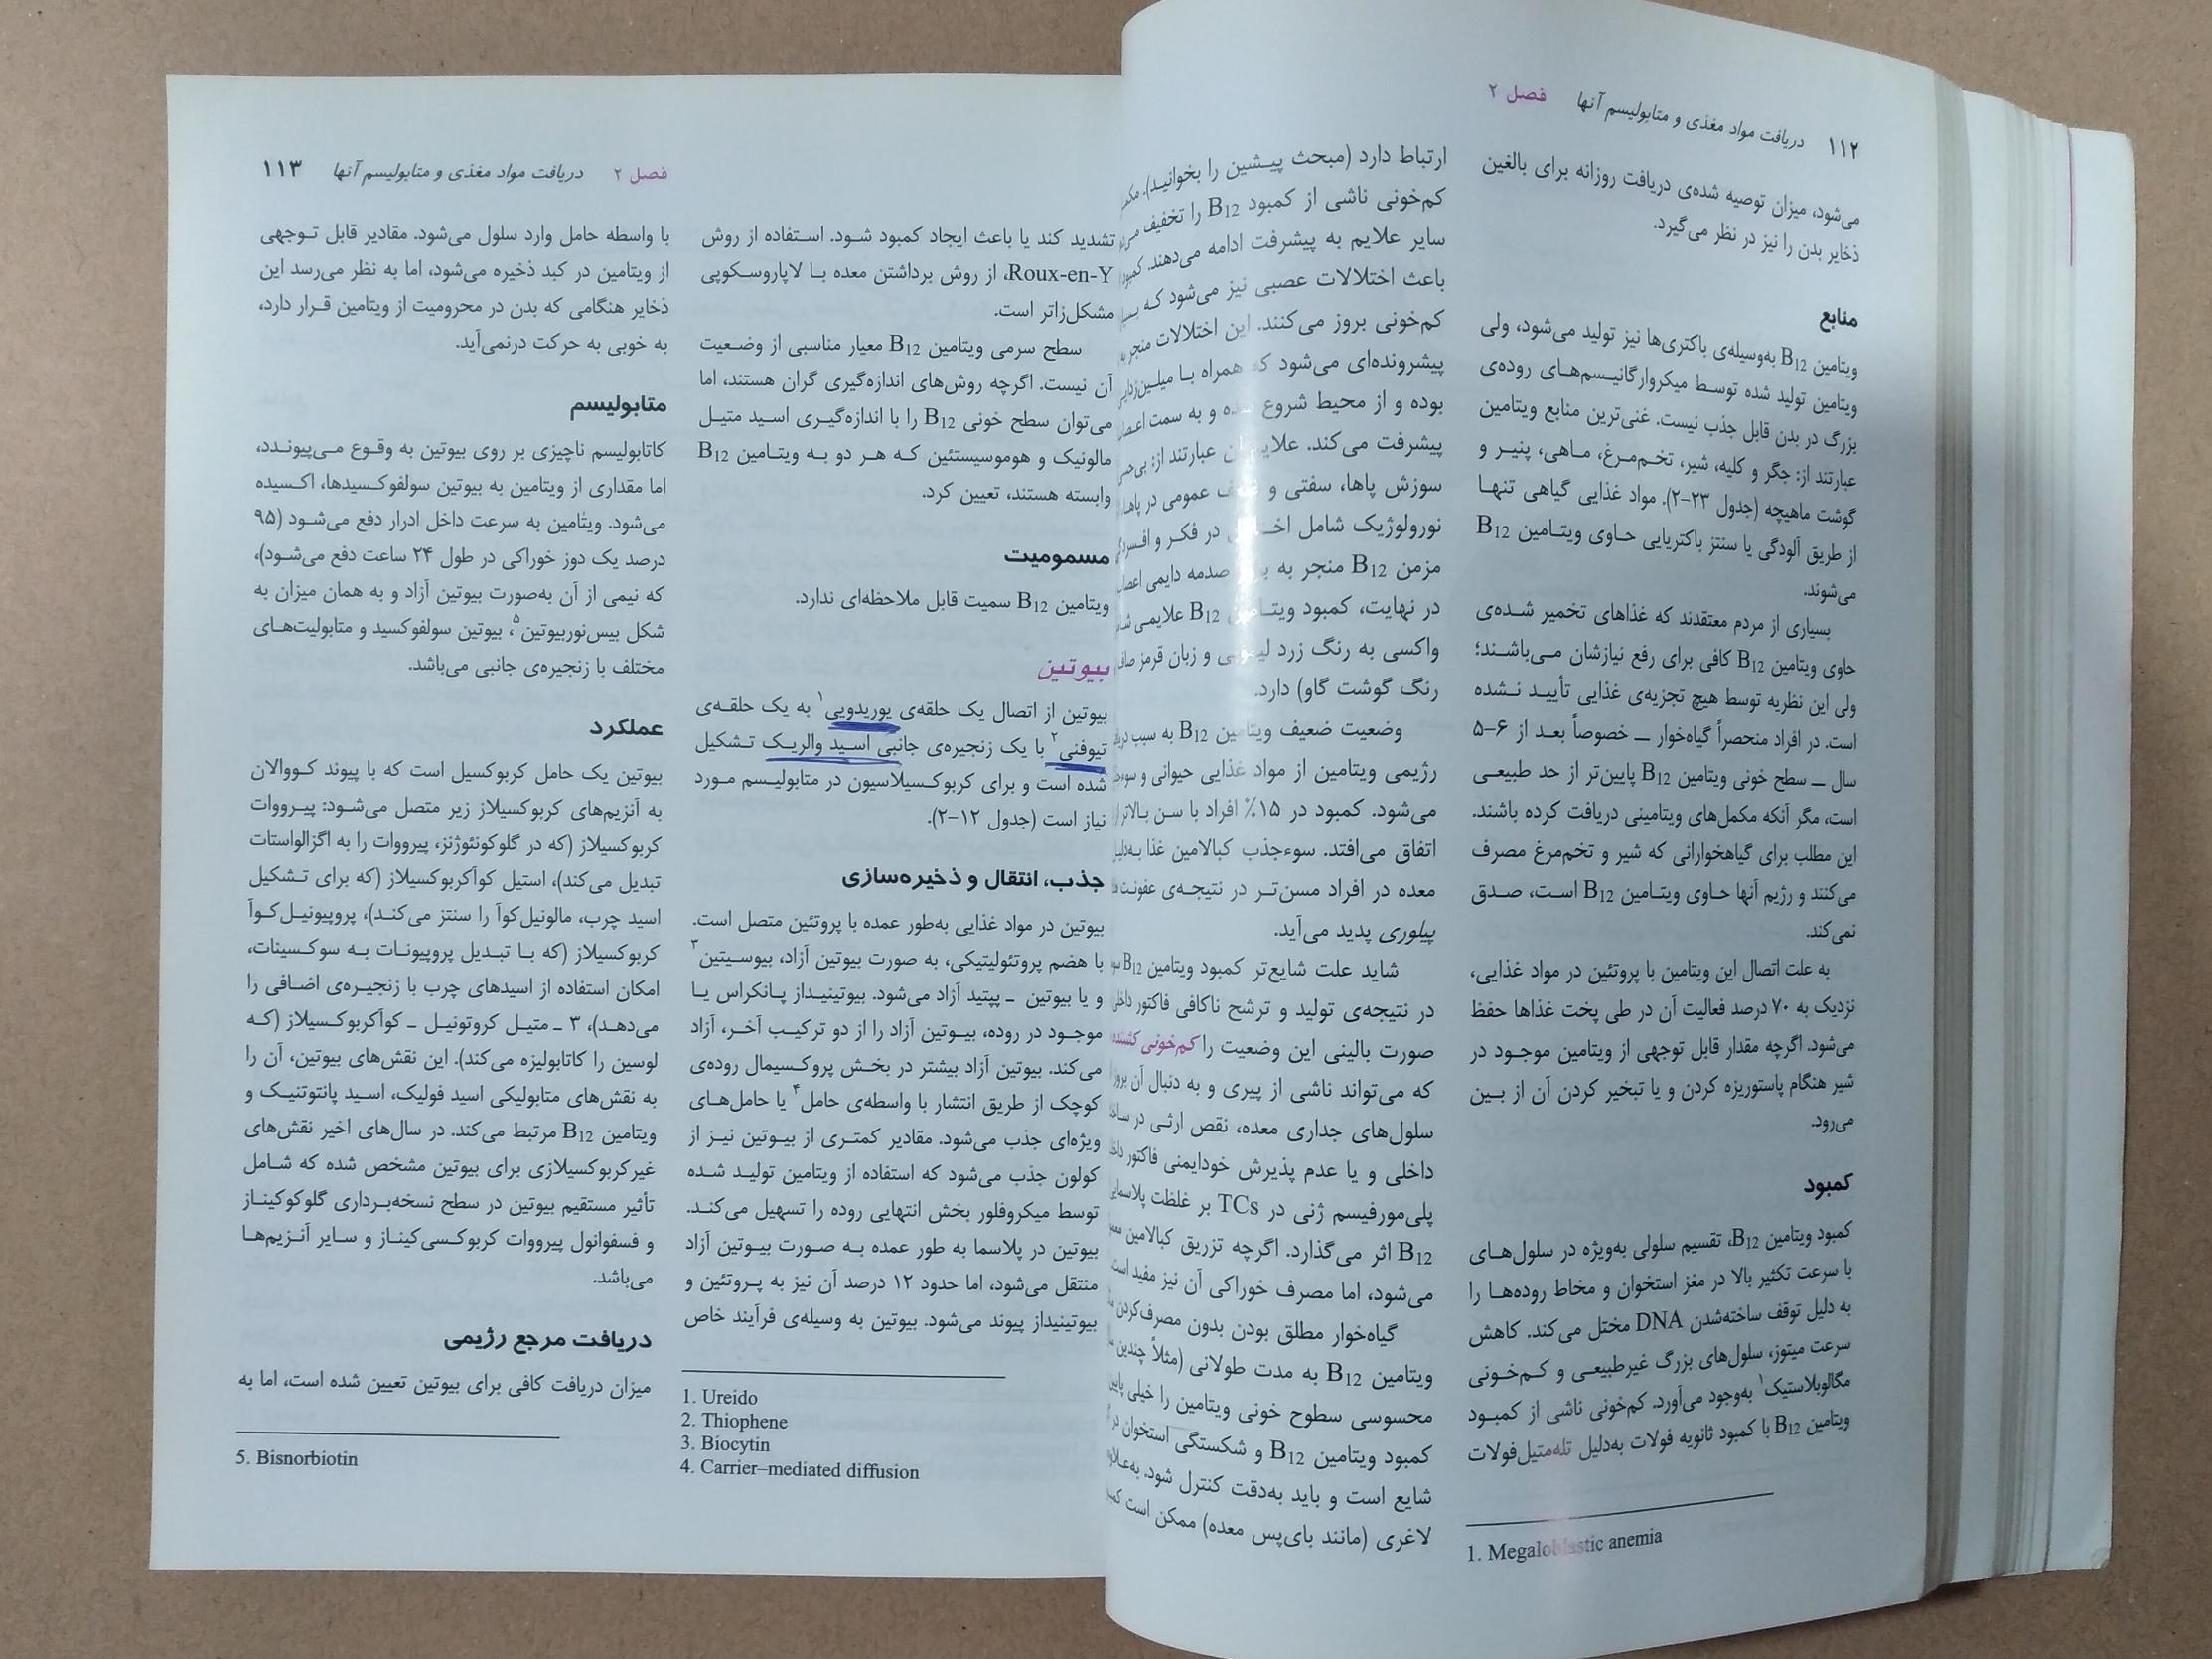 ۱۱۲ دریافت مواد مغذی و متابولیسم آنها فصل ۲
می‌شود، میزان توصیه شده‌ی دریافت روزانه برای بالغین
ذخایر بدن را نیز در نظر می‌گیرد.
منابع
ویتامین B12 به‌وسیله‌ی باکتری‌ها نیز تولید می‌شود، ولی
ویتامین تولید شده توسط میکروارگانیسم‌های روده‌ی
بزرگ در بدن قابل جذب نیست. غنی‌ترین منابع ویتامین
عبارتند از: جگر و کلیه، شیر، تخم‌مرغ، ماهی، پنیر و
گوشت ماهیچه (جدول ۲۳-۲). مواد غذایی گیاهی تنها
از طریق آلودگی یا سنتز باکتریایی حاوی ویتامین B12
می‌شوند.
بسیاری از مردم معتقدند که غذاهای تخمیر شده‌ی
حاوی ویتامین B12 کافی برای رفع نیازشان می‌باشند؛
ولی این نظریه توسط هیچ تجزیه‌ی غذایی تأیید نشده
است. در افراد منحصراً گیاه‌خوار ــ خصوصاً بعد از ۶-۵
سال ــ سطح خونی ویتامین B12 پایین‌تر از حد طبیعی
است، مگر آنکه مکمل‌های ویتامینی دریافت کرده باشند.
این مطلب برای گیاهخوارانی که شیر و تخم‌مرغ مصرف
می‌کنند و رژیم آنها حاوی ویتامین B12 است، صدق
نمی‌کند.
به علت اتصال این ویتامین با پروتئین در مواد غذایی،
نزدیک به ۷۰ درصد فعالیت آن در طی پخت غذاها حفظ
می‌شود. اگرچه مقدار قابل توجهی از ویتامین موجود در
شیر هنگام پاستوریزه کردن و یا تبخیر کردن آن از بین
می‌رود.
کمبود
کمبود ویتامین B12، تقسیم سلولی به‌ویژه در سلول‌های
با سرعت تکثیر بالا در مغز استخوان و مخاط روده‌ها را
به دلیل توقف ساخته‌شدن DNA مختل می‌کند. کاهش
سرعت میتوز، سلول‌های بزرگ غیرطبیعی و کم‌خونی
مگالوبلاستیک۱ به‌وجود می‌آورد. کم‌خونی ناشی از کمبود
ویتامین B12 با کمبود ثانویه فولات به‌دلیل تله‌متیل‌فولات
1. Megaloblastic anemia
ارتباط دارد (مبحث پیشین را بخوانید).
کم‌خونی ناشی از کمبود B12 را تخفیف
سایر علایم به پیشرفت ادامه می‌دهند.
باعث اختلالات عصبی نیز می‌شود که
کم‌خونی بروز می‌کنند. این اختلالات منجر
پیشرونده‌ای می‌شود که همراه با
بوده و از محیط شروع شده و به سمت
پیشرفت می‌کند. علایم آن عبارتند از:
سوزش پاها، سفتی و ضعف عمومی در
نورولوژیک شامل در فکر و
مزمن B12 منجر به صدمه دایمی
در نهایت، کمبود ویتامین B12 علایمی
واکسی به رنگ زرد لیمویی و زبان قرمز
رنگ گوشت گاو) دارد.
وضعیت ضعیف ویتامین B12 به سبب
رژیمی ویتامین از مواد غذایی حیوانی و
می‌شود. کمبود در ۱۵٪ افراد با سن بالاتر
اتفاق می‌افتد. سوءجذب کبالامین غذا
معده در افراد مسن‌تر در نتیجه‌ی عفونت
پیلوری پدید می‌آید.
شاید علت شایع‌تر کمبود ویتامین B12
در نتیجه‌ی تولید و ترشح ناکافی فاکتور
صورت بالینی این وضعیت را کم‌خونی کشنده
که می‌تواند ناشی از پیری و به دنبال آن
سلول‌های جداری معده، نقص ارثی در
داخلی و یا عدم پذیرش خودایمنی فاکتور
پلی‌مورفیسم ژنی در TCs بر غلظت
B12 اثر می‌گذارد. اگرچه تزریق کبالامین
می‌شود، اما مصرف خوراکی آن نیز مفید است
گیاه‌خوار مطلق بودن بدون مصرف‌کردن
ویتامین B12 به مدت طولانی (مثلاً چندین
محسوسی سطوح خونی ویتامین را خیلی
کمبود ویتامین B12 و شکستگی استخوان
شایع است و باید به‌دقت کنترل شود.
لاغری (مانند بای‌پس معده) ممکن است
فصل ۲ دریافت مواد مغذی و متابولیسم آنها ۱۱۳
تشدید کند یا باعث ایجاد کمبود شود. استفاده از روش
Roux-en-Y، از روش برداشتن معده با لاپاروسکوپی
مشکل‌زاتر است.
سطح سرمی ویتامین B12 معیار مناسبی از وضعیت
آن نیست. اگرچه روش‌های اندازه‌گیری گران هستند، اما
می‌توان سطح خونی B12 را با اندازه‌گیری اسید متیل
مالونیک و هوموسیستئین که هر دو به ویتامین B12
وابسته هستند، تعیین کرد.
مسمومیت
ویتامین B12 سمیت قابل ملاحظه‌ای ندارد.
بیوتین
بیوتین از اتصال یک حلقه‌ی یوریدویی۱ به یک حلقه‌ی
تیوفنی۲ با یک زنجیره‌ی جانبی اسید والریک تشکیل
شده است و برای کربوکسیلاسیون در متابولیسم مورد
نیاز است (جدول ۱۲-۲).
جذب، انتقال و ذخیره‌سازی
بیوتین در مواد غذایی به‌طور عمده با پروتئین متصل است.
با هضم پروتئولیتیکی، به صورت بیوتین آزاد، بیوسیتین۳
و یا بیوتین ـ پپتید آزاد می‌شود. بیوتینیداز پانکراس یا
موجود در روده، بیوتین آزاد را از دو ترکیب آخر، آزاد
می‌کند. بیوتین آزاد بیشتر در بخش پروکسیمال روده‌ی
کوچک از طریق انتشار با واسطه‌ی حامل۴ یا حامل‌های
ویژه‌ای جذب می‌شود. مقادیر کمتری از بیوتین نیز از
کولون جذب می‌شود که استفاده از ویتامین تولید شده
توسط میکروفلور بخش انتهایی روده را تسهیل می‌کند.
بیوتین در پلاسما به طور عمده به صورت بیوتین آزاد
منتقل می‌شود، اما حدود ۱۲ درصد آن نیز به پروتئین و
بیوتینیداز پیوند می‌شود. بیوتین به وسیله‌ی فرآیند خاص
1. Ureido
2. Thiophene
3. Biocytin
4. Carrier–mediated diffusion
با واسطه حامل وارد سلول می‌شود. مقادیر قابل توجهی
از ویتامین در کبد ذخیره می‌شود، اما به نظر می‌رسد این
ذخایر هنگامی که بدن در محرومیت از ویتامین قرار دارد،
به خوبی به حرکت درنمی‌آید.
متابولیسم
کاتابولیسم ناچیزی بر روی بیوتین به وقوع می‌پیوندد،
اما مقداری از ویتامین به بیوتین سولفوکسیدها، اکسیده
می‌شود. ویتامین به سرعت داخل ادرار دفع می‌شود (۹۵
درصد یک دوز خوراکی در طول ۲۴ ساعت دفع می‌شود)،
که نیمی از آن به‌صورت بیوتین آزاد و به همان میزان به
شکل بیس‌نوربیوتین۵، بیوتین سولفوکسید و متابولیت‌های
مختلف با زنجیره‌ی جانبی می‌باشد.
عملکرد
بیوتین یک حامل کربوکسیل است که با پیوند کووالان
به آنزیم‌های کربوکسیلاز زیر متصل می‌شود: پیرووات
کربوکسیلاز (که در گلوکونئوژنز، پیرووات را به اگزالواستات
تبدیل می‌کند)، استیل کوآکربوکسیلاز (که برای تشکیل
اسید چرب، مالونیل‌کوآ را سنتز می‌کند)، پروپیونیل‌کوآ
کربوکسیلاز (که با تبدیل پروپیونات به سوکسینات،
امکان استفاده از اسیدهای چرب با زنجیره‌ی اضافی را
می‌دهد)، ۳ ـ متیل کروتونیل ـ کوآکربوکسیلاز (که
لوسین را کاتابولیزه می‌کند). این نقش‌های بیوتین، آن را
به نقش‌های متابولیکی اسید فولیک، اسید پانتوتنیک و
ویتامین B12 مرتبط می‌کند. در سال‌های اخیر نقش‌های
غیرکربوکسیلازی برای بیوتین مشخص شده که شامل
تأثیر مستقیم بیوتین در سطح نسخه‌برداری گلوکوکیناز
و فسفوانول پیرووات کربوکسی‌کیناز و سایر آنزیم‌ها
می‌باشد.
دریافت مرجع رژیمی
میزان دریافت کافی برای بیوتین تعیین شده است، اما به
5. Bisnorbiotin